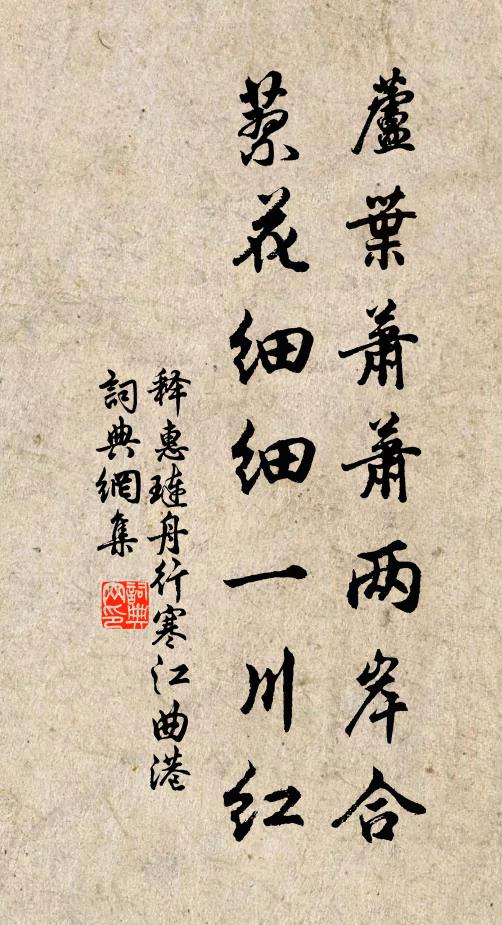 蘆葉蕭蕭兩岸合
蓼花細細一川紅
释惠璉舟行寒江曲港
詞典網集
詞典
网印